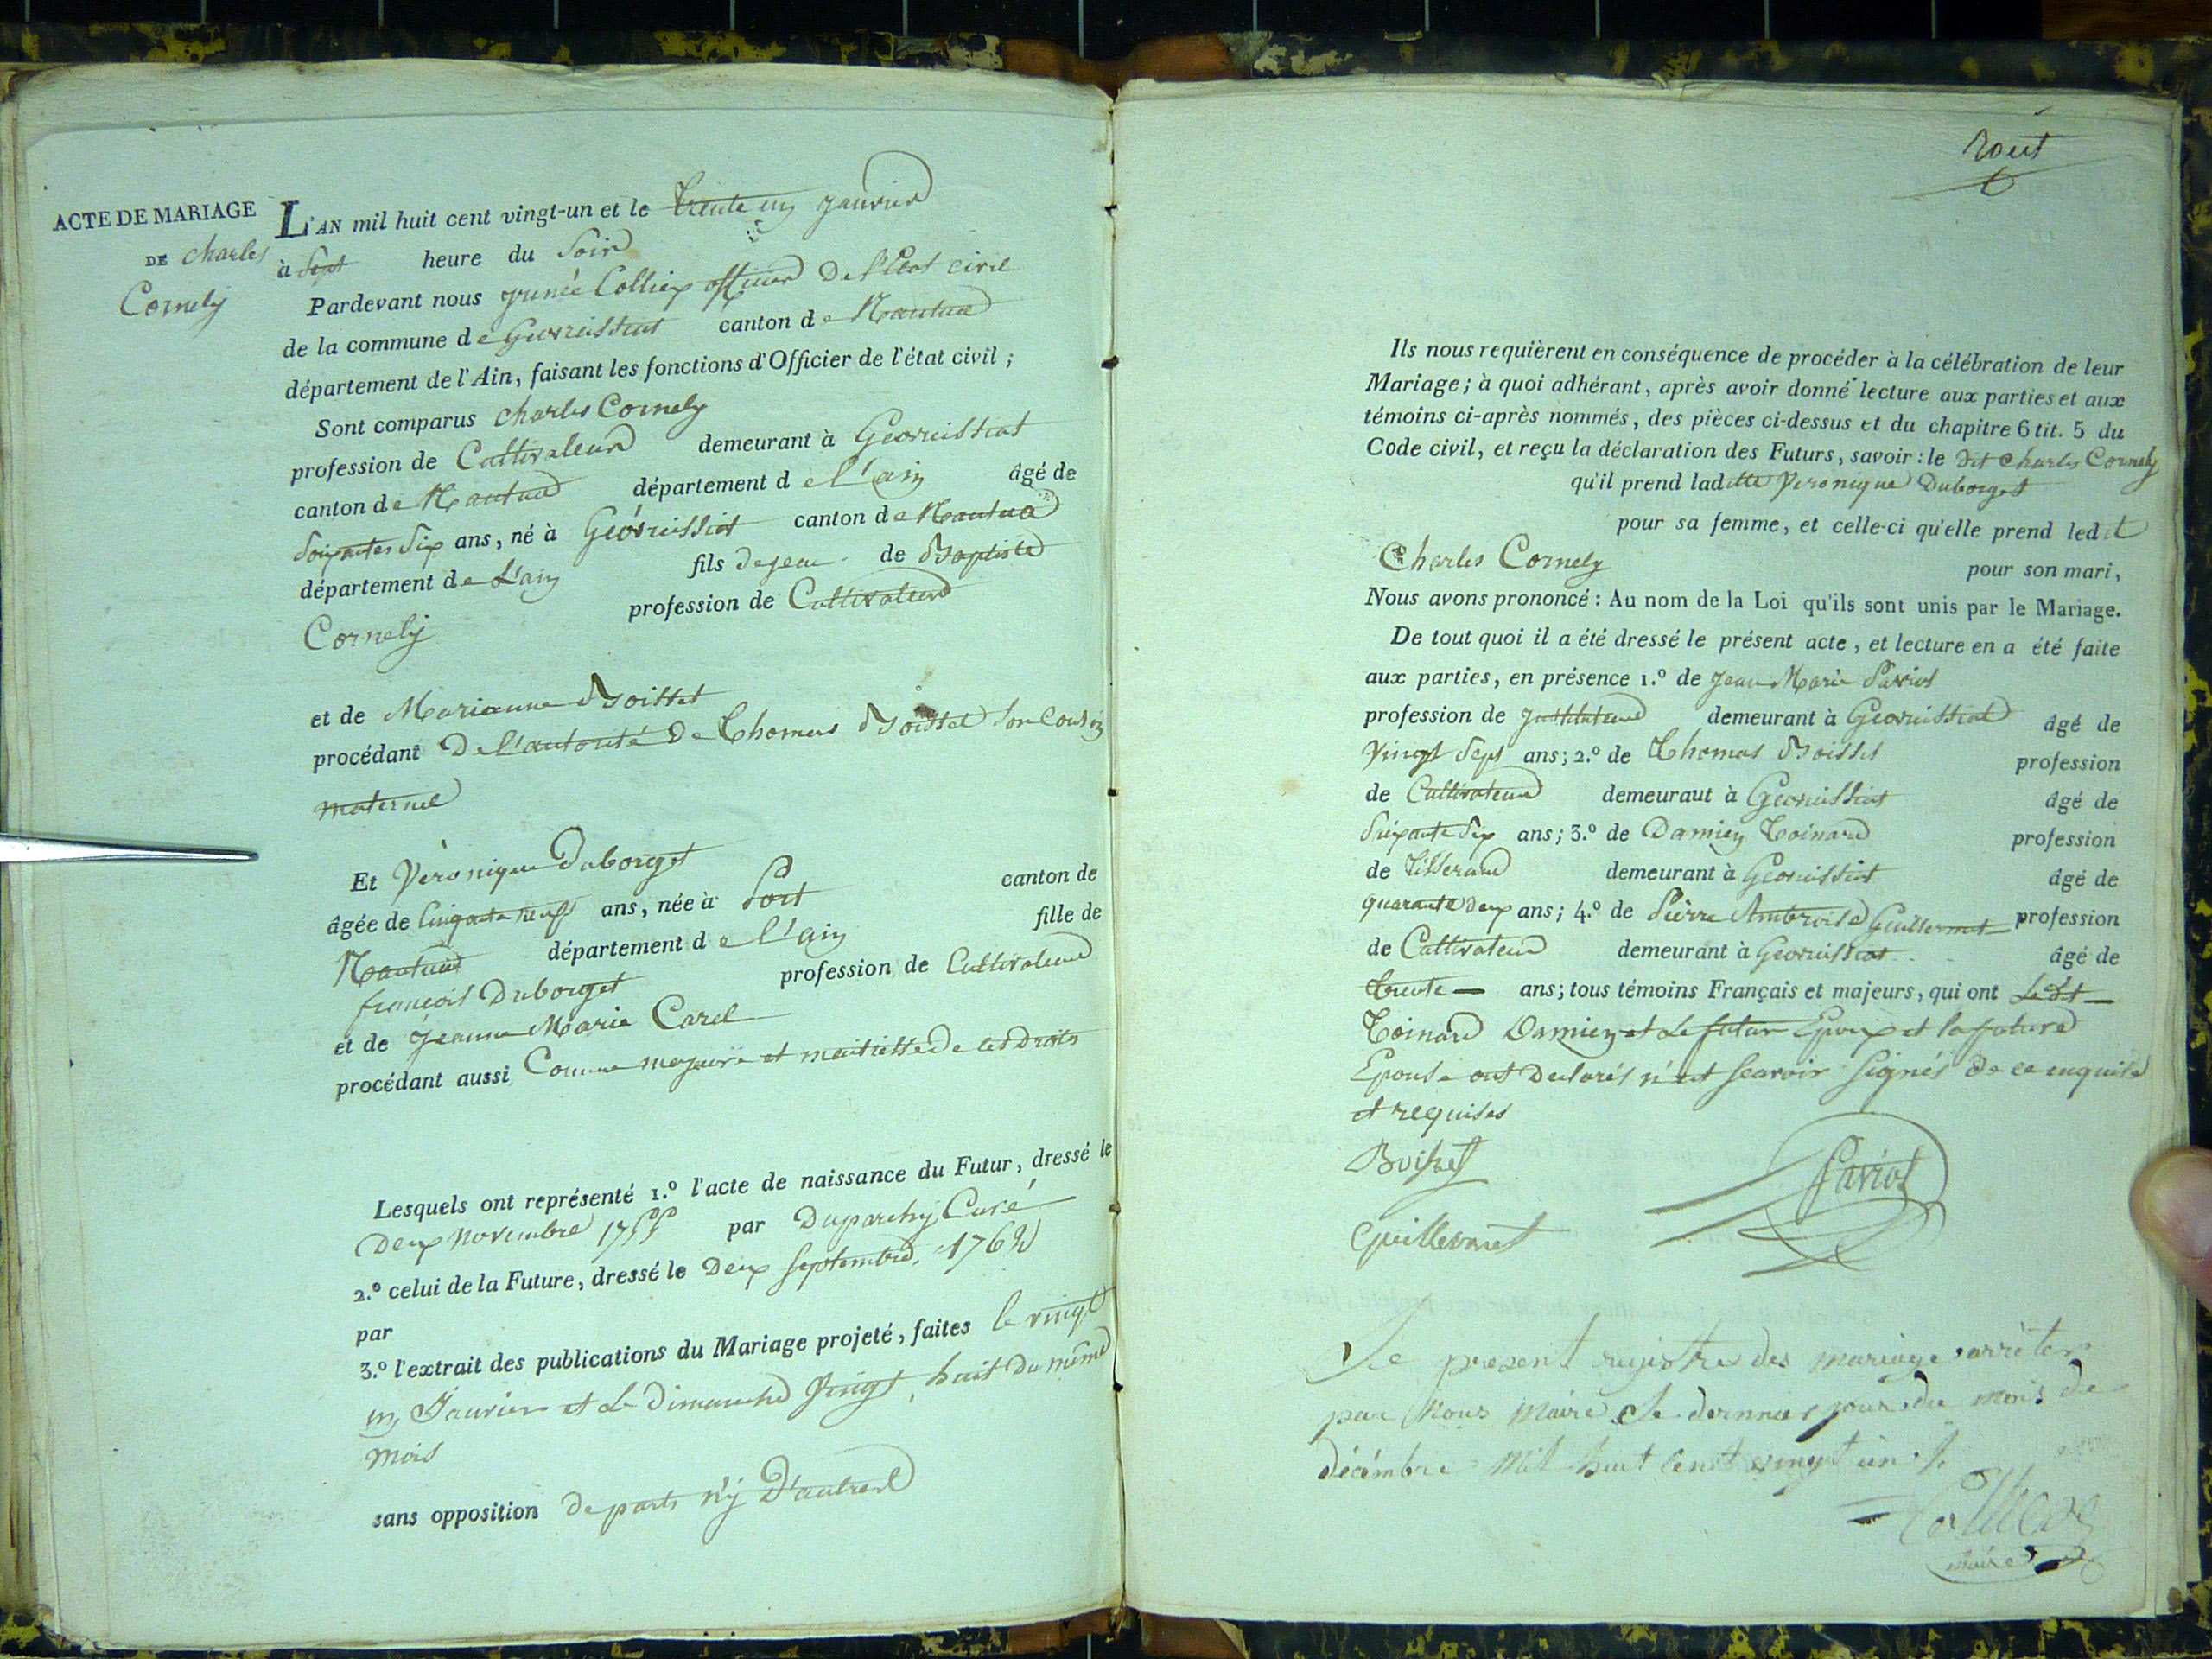 ACTE DE MARIAGE
DE Charles
Cornely
L'AN mil huit cent vingt-un et le trente un janvier
à Sept heure du Soir
Pardevant nous Collier officier De l'Etat civil
de la commune de Geovreissiat canton de Nantua
département de l'Ain, faisant les fonctions d'Officier de l'état civil ;
Sont comparus Charles Cornely
profession de Cultivateur demeurant à Geovreissiat
canton de Nantua département de l'ain âgé de
Soixantes Six ans, né à Geovreissiat canton de Nantua
département de L'ain fils de jean de Baptiste
Cornely profession de Cultivateur
et de Marianne Boisset
procédant De l'autorité De Thomas Boisset son Cousin
maternel
Et Véronique Duborget
âgée de Cinquante neuf ans, née à Port canton de
Nantua département de l'ain fille de
françois Duborget profession de Cultivateur
et de Jeanne Marie Carel
procédant aussi Comme majeure et maitresse De ces Droits
Lesquels ont représenté 1.º l'acte de naissance du Futur, dressé le
Deux Novembre 1755 par Duparchy Curé
2.º celui de la Future, dressé le Deux Septembre 1762
par
3.º l'extrait des publications du Mariage projeté, faites le vingt
un Janvier et Le Dimanche Vingt huit Du même
Mois
sans opposition de parts n'y D'autres
Rout
6
Ils nous requièrent en conséquence de procéder à la célébration de leur
Mariage ; à quoi adhérant, après avoir donné lecture aux parties et aux
témoins ci-après nommés, des pièces ci-dessus et du chapitre 6 tit. 5 du
Code civil, et reçu la déclaration des Futurs, savoir : le Dit Charles Cornely
qu'il prend laditte Veronique Duborget
pour sa femme, et celle-ci qu'elle prend ledit
Charles Cornely pour son mari,
Nous avons prononcé : Au nom de la Loi qu'ils sont unis par le Mariage.
De tout quoi il a été dressé le présent acte, et lecture en a été faite
aux parties, en présence 1.º de Jean Marie Paviot
profession de Instituteur demeurant à Geovreissiat âgé de
Vingt Sept ans ; 2.º de Thomas Boisset profession
de Cultivateur demeuraut à Geovreissiat âgé de
Soixante Six ans ; 3.º de Damien Toinard profession
de Tisserand demeurant à Geovreissiat âgé de
quarante deux ans ; 4.º de Pierre Ambroise Guillermet profession
de Cultivateur demeurant à Geovreissiat âgé de
trente — ans ; tous témoins Français et majeurs, qui ont Le dit —
Toinard Damien et Le futur Epoux et la future
Epouse ont Declarés n'ut scavoir Signés De ce enquise
et requises
Boisset
Paviot
Guillermet
Le present registre des mariage arrêter
par Nous Maire le dernnier jour du mois de
décémbre Mil huit Cent vingt un
Collier
Maire